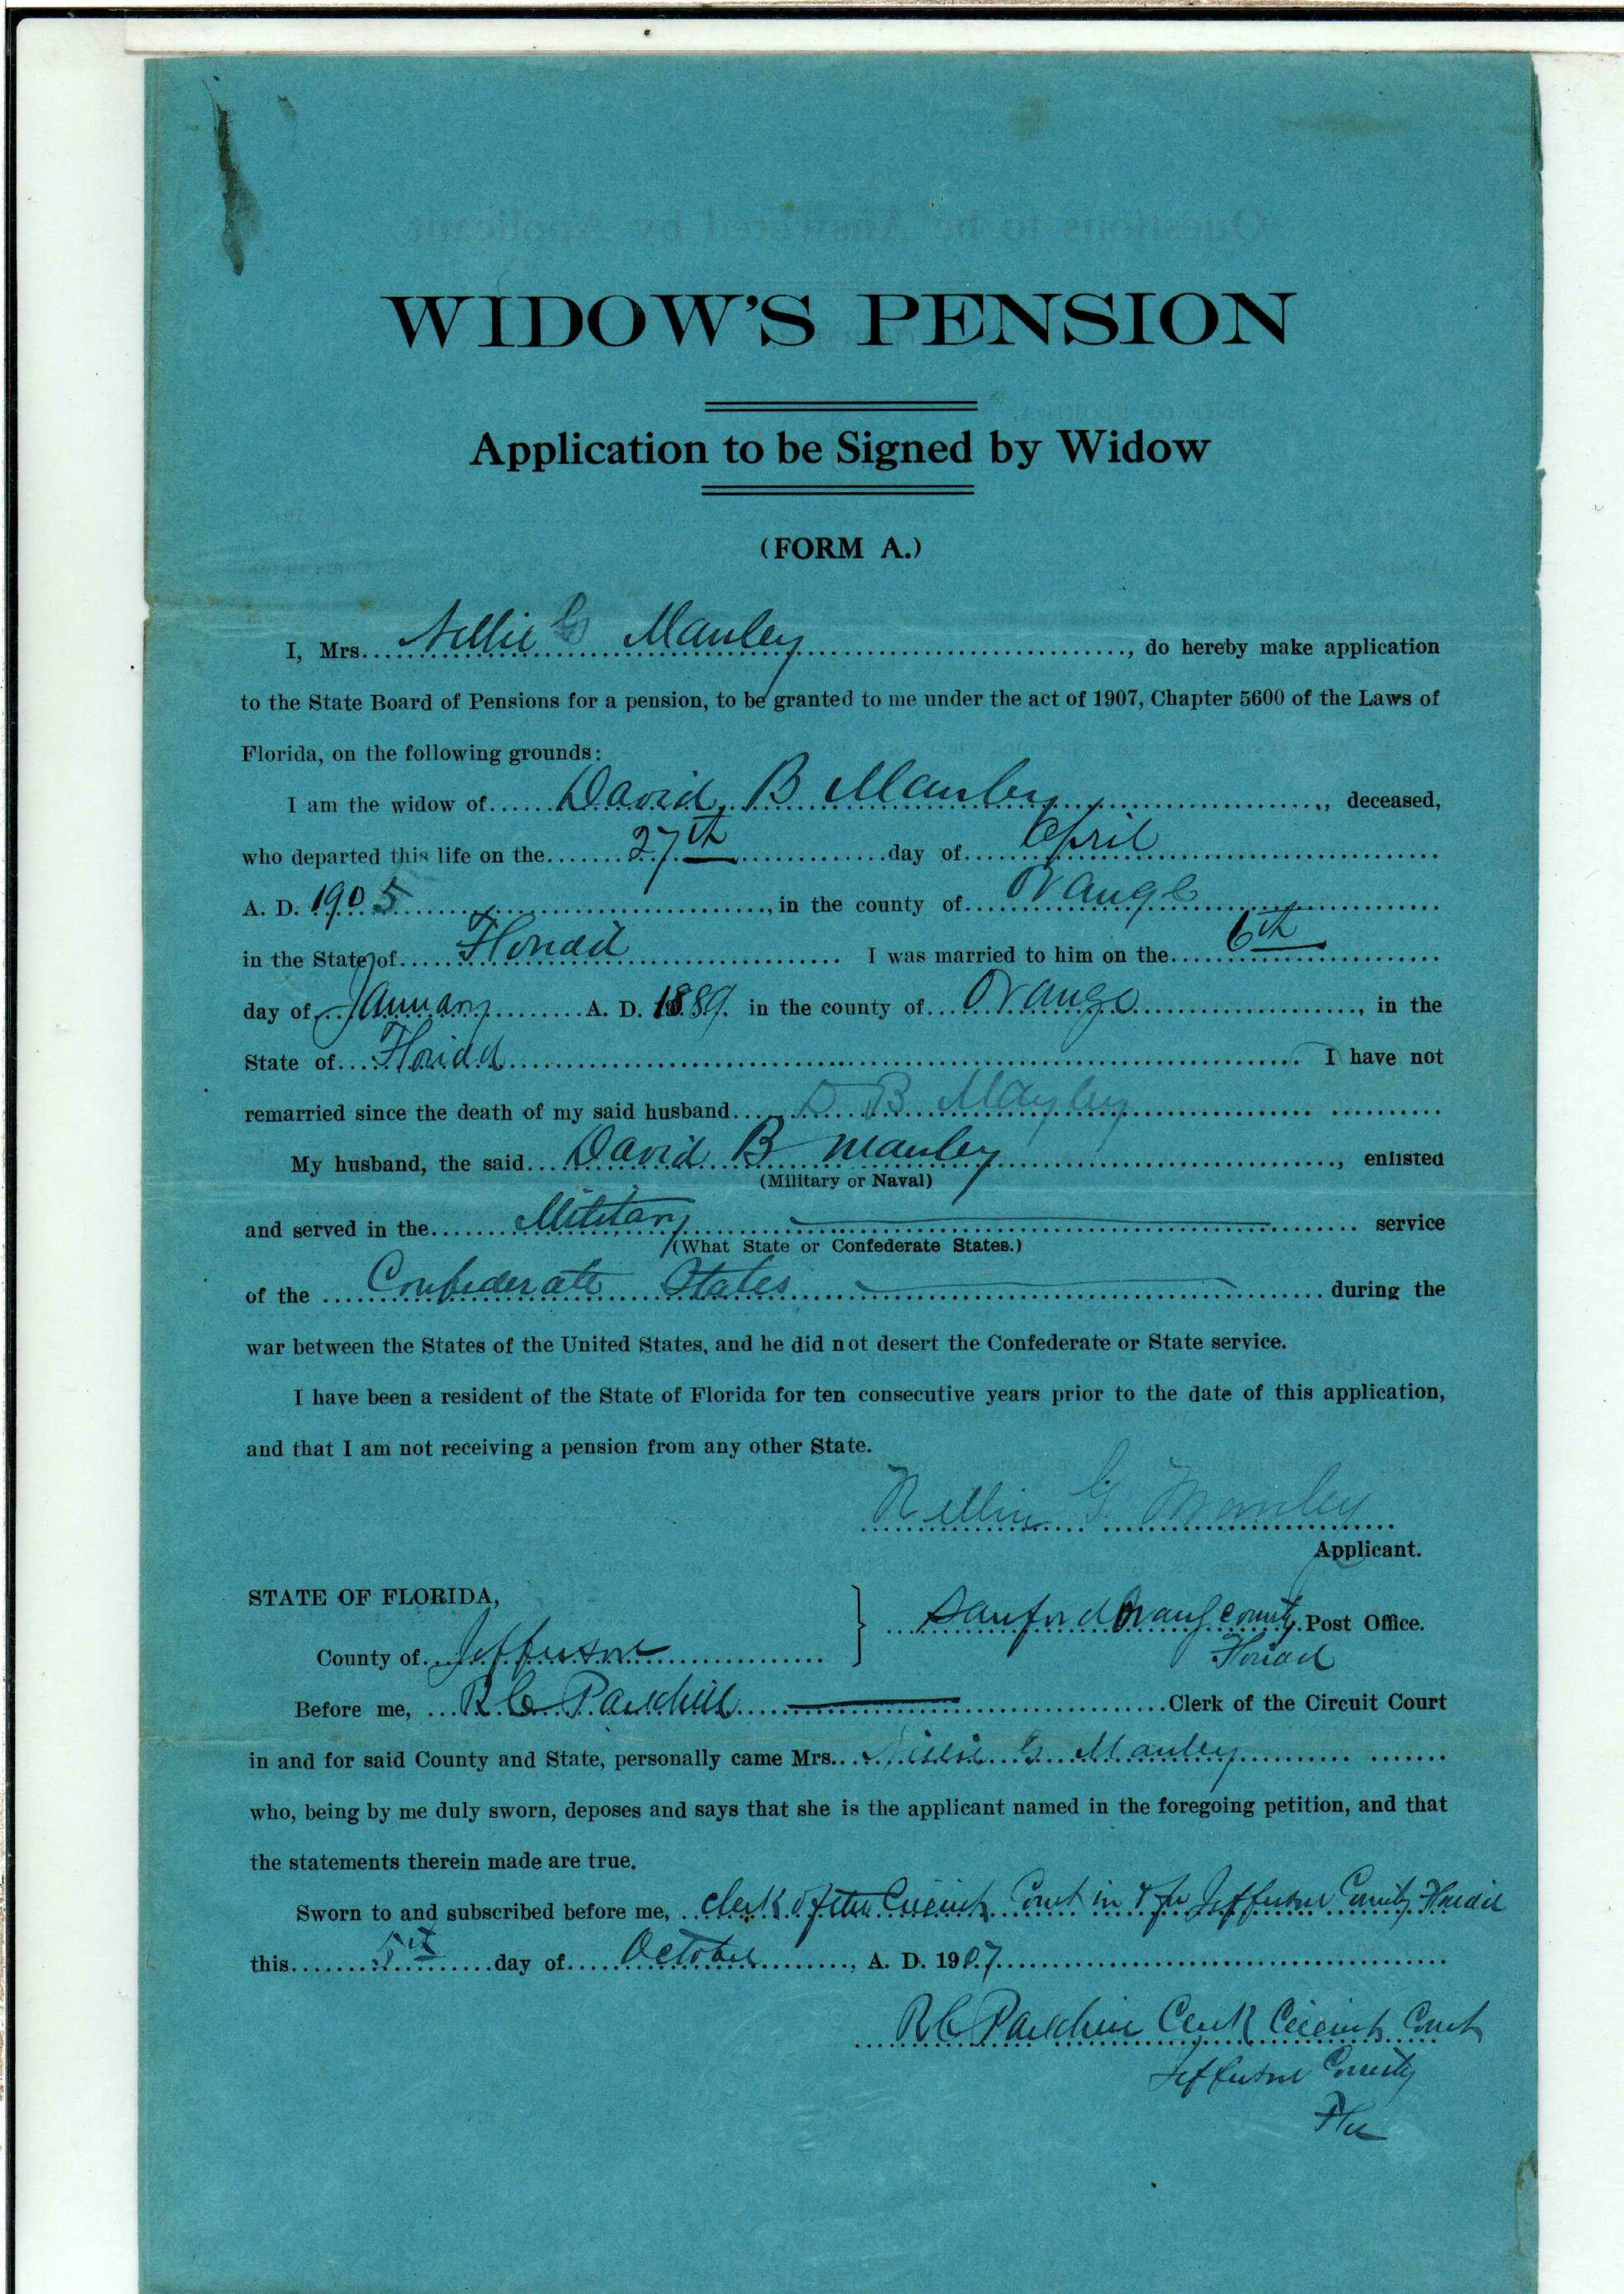 WIDOW'S PENSION
Application to be Signed by Widow
(FORM A.)
I, Mrs. Nellie G Manley, do hereby make application
to the State Board of Pensions for a pension, to be granted to me under the act of 1907, Chapter 5600 of the Laws of
Florida, on the following grounds:
I am the widow of David B Manley, deceased,
who departed this life on the 27th day of April
A. D. 1905, in the county of Orange
in the State of Florida I was married to him on the 6th
day of January A. D. 1889. in the county of Orange, in the
State of Florida. I have not
remarried since the death of my said husband D B Manley
My husband, the said David B Manley, enlisted
(Military or Naval)
and served in the Military service
(What State or Confederate States.)
of the Confederate States during the
war between the States of the United States, and he did not desert the Confederate or State service.
I have been a resident of the State of Florida for ten consecutive years prior to the date of this application,
and that I am not receiving a pension from any other State.
Nellie G Manley
Applicant.
STATE OF FLORIDA,
Sanford Orange County Post Office.
Florida
County of Jefferson
Before me, R C Parkhill Clerk of the Circuit Court
in and for said County and State, personally came Mrs. Nellie G Manley
who, being by me duly sworn, deposes and says that she is the applicant named in the foregoing petition, and that
the statements therein made are true.
Sworn to and subscribed before me, Clerk of the Circuit Court in & for Jefferson County Florida
this 5th day of October, A. D. 1907
R C Parkhill Clerk Circuit Court
Jefferson County
Fla